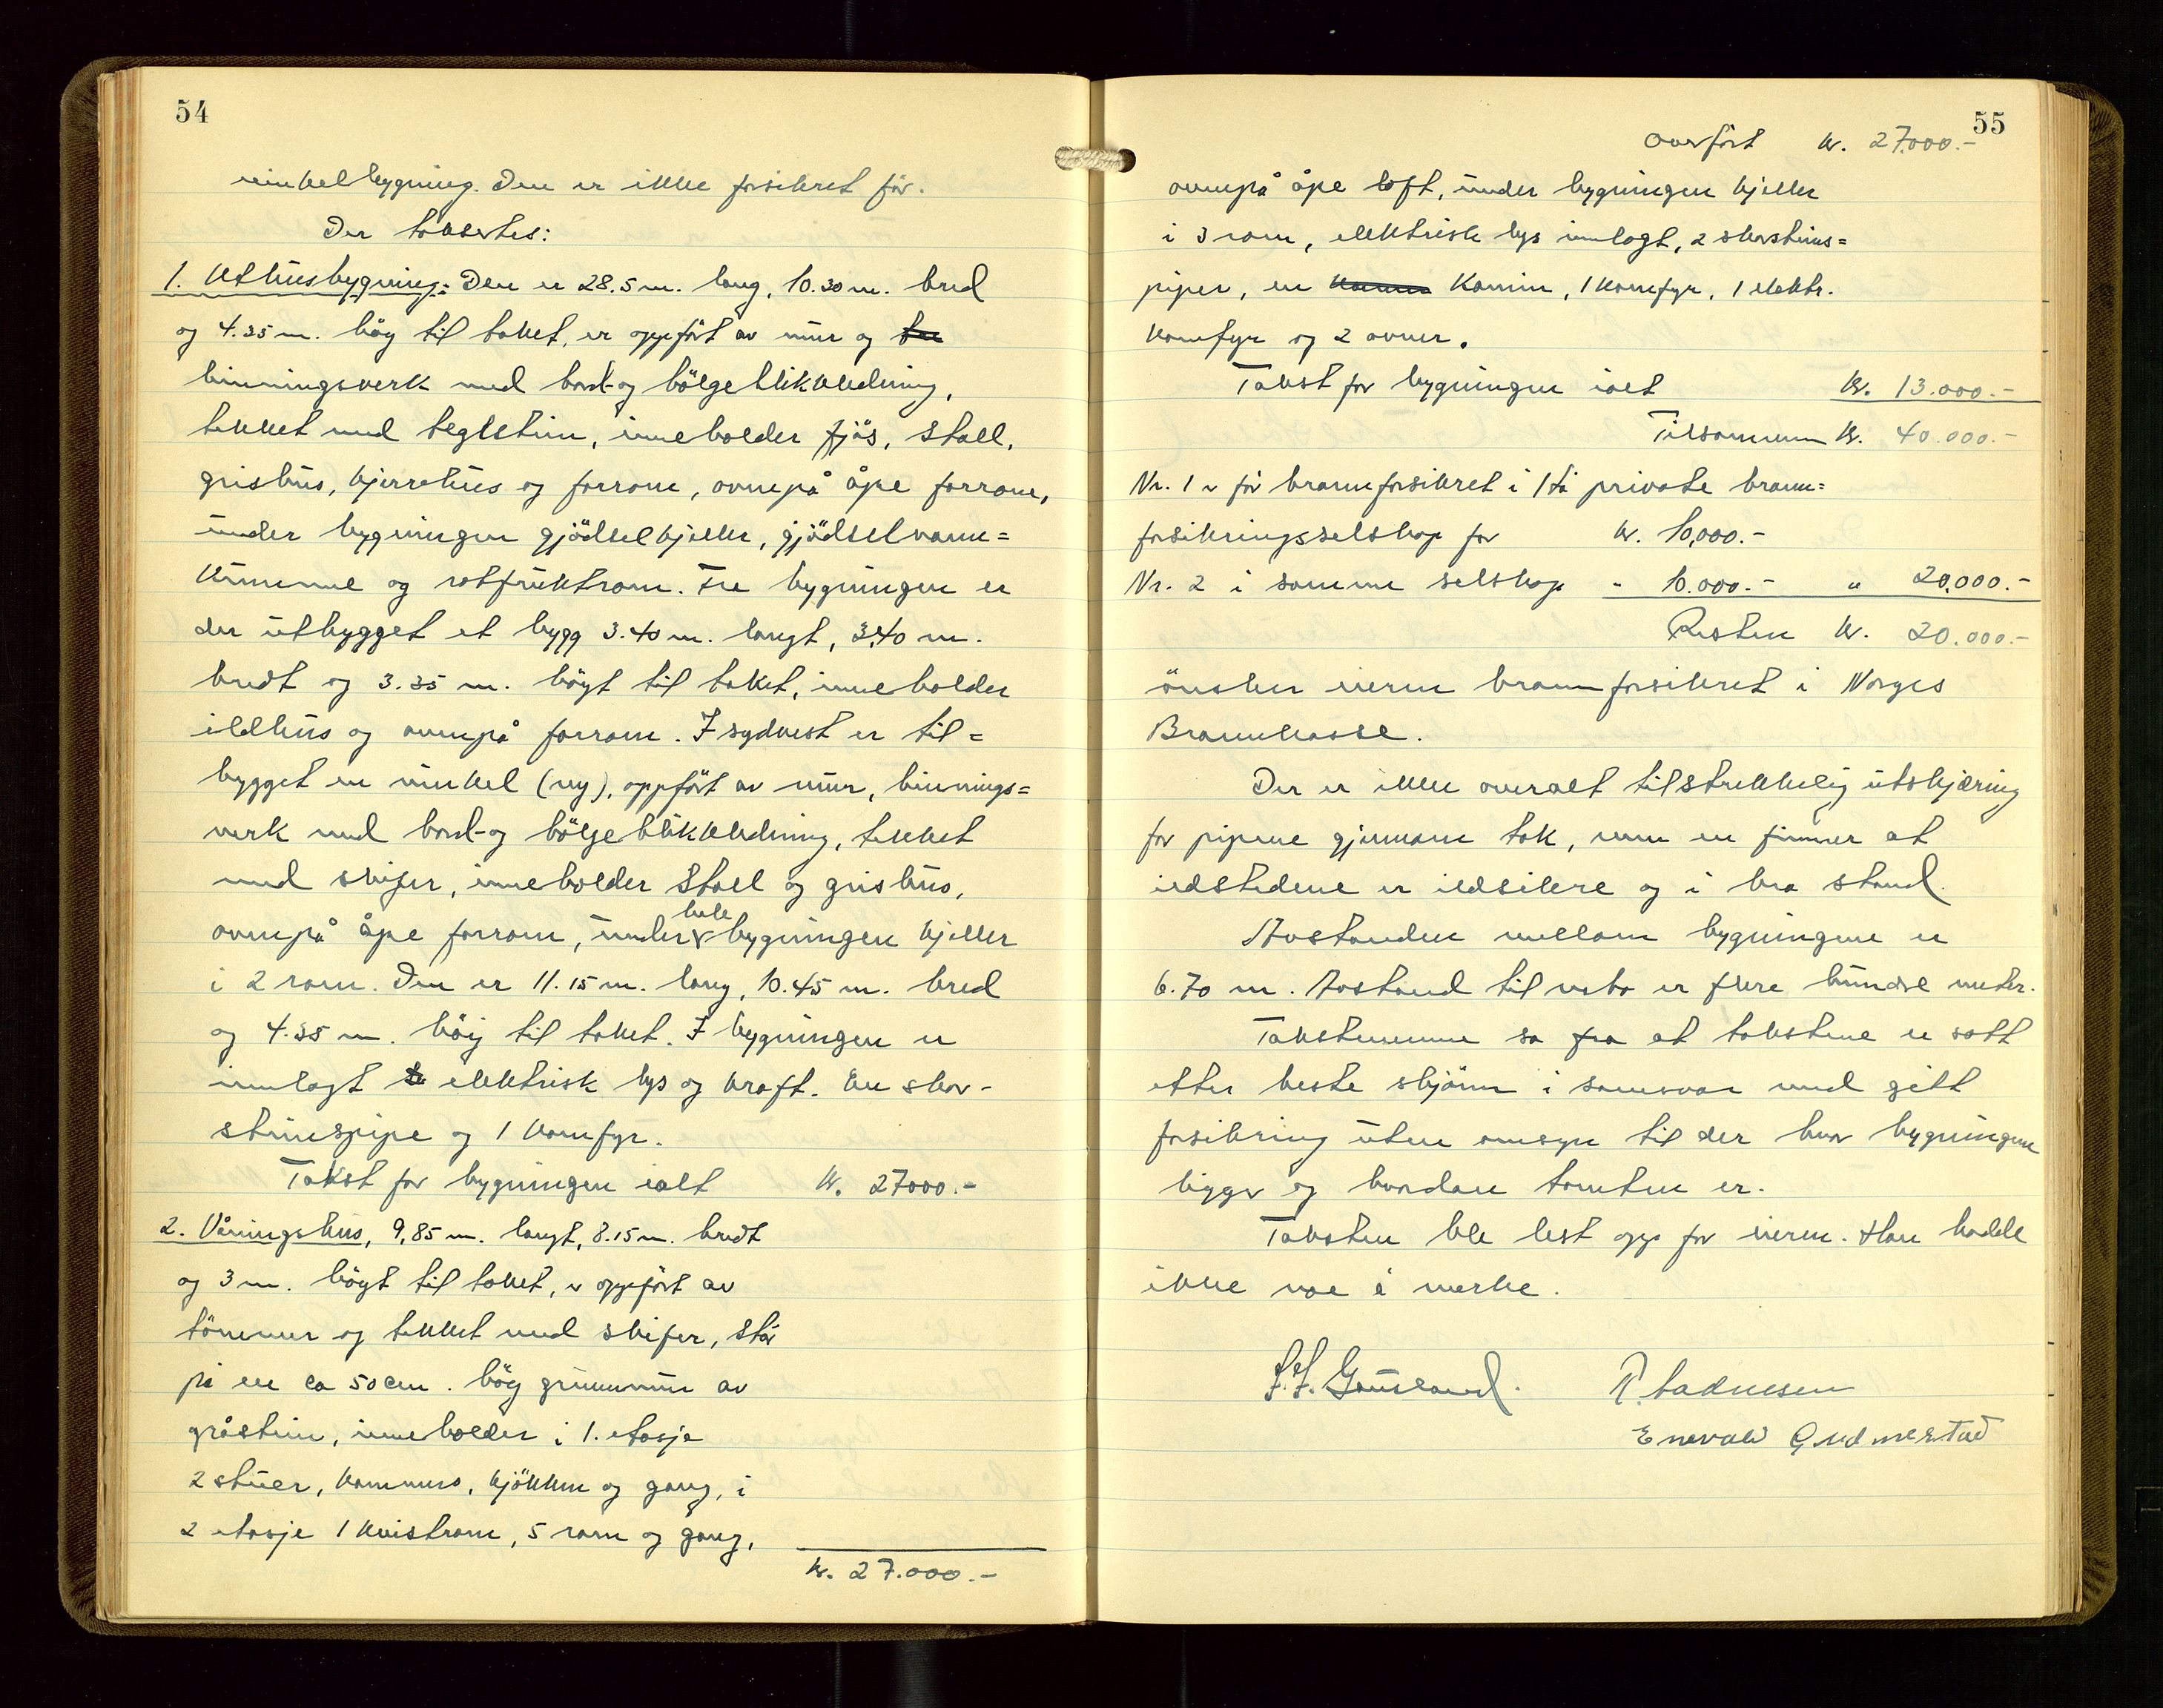 54
vinkelbygning. Den er ikke forsikret før.
Der taksertes:
1. Uthusbygning: Den er 28.5 m. lang, 10.30 m. bred
og 4.35 m. hög til taket, er oppfört av mur og tre
binningsverk med bord- og bölgeblikkledning,
tekket med teglstein, inneholder fjös, stall,
grishus, kjerrehus og forrom, ovenpå åpe forrom,
under bygningen gjödselkjeller, gjödselvann=
kumme og rotfruktrom. Fra bygningen er
der utbygget et bygg 3.40 m. langt, 3,40 m.
bredt og 3.35 m. högt til taket, inneholder
ildhus og ovenpå forrom. I sydvest er til=
bygget en vinkel (ny), oppfört av mur, binnings=
verk med bord- og bölgeblikkledning, tekket
med skifer, inneholder stall og grishus,
ovenpå åpe forrom, under hele bygningen kjeller
i 2 rom. Den er 11.15 m. lang, 10.45 m. bred
og 4.35 m. höy til taket. I bygningen er
innlagt elektrisk lys og kraft. En skor-
steinspipe og 1 komfyr.
Takst for bygningen ialt kr. 27000.-
2. Våningshus, 9,85 m. langt, 8.15 m. bredt
og 3 m. högt til taket, er oppfört av
tömmer og tekket med skifer, står
på en ca 50 cm. hög grunnmur av
gråstein, inneholder i 1. etasje
2 stuer, kammers, kjökken og gang, i
2 etasje 1 kvistrom, 5 rom og gang,
kr. 27.000.-
55
Overfört kr. 27.000.-
ovenpå åpe loft, under bygningen kjeller
i 3 rom, elektrisk lys innlagt, 2 skorsteins=
piper, en Kamin, 1 komfyr, 1 elektr.
komfyr og 2 ovner.
Takst for bygningen ialt kr. 13.000.-
Tilsammen kr. 40.000.-
Nr. 1 er för brannforsikret i Hå private brann=
forsikringsselskap for kr. 10,000.-
Nr. 2 i samme selskap " 10.000.- " 20,000.-
Resten kr. 20.000.-
önsker eieren brannforsikret i Norges
Brannkasse.
Der er ikke overalt tilstrekkelig utskjæring
for pipene gjennom tak, men en finner at
ildstedene er ildsikre og i bra stand.
Avstanden mellom bygningene er
6.70 m. Avstand til nabo er flere hundre meter.
Takstmennene sa fra at takstene er satt
etter beste skjönn i samsvar med gitt
forsikring uten omsyn til der hvor bygningene
ligger og hvordan tomten er.
Taksten ble lest opp for eieren. Han hadde
ikke noe å merke.
Enevald Gudmestad